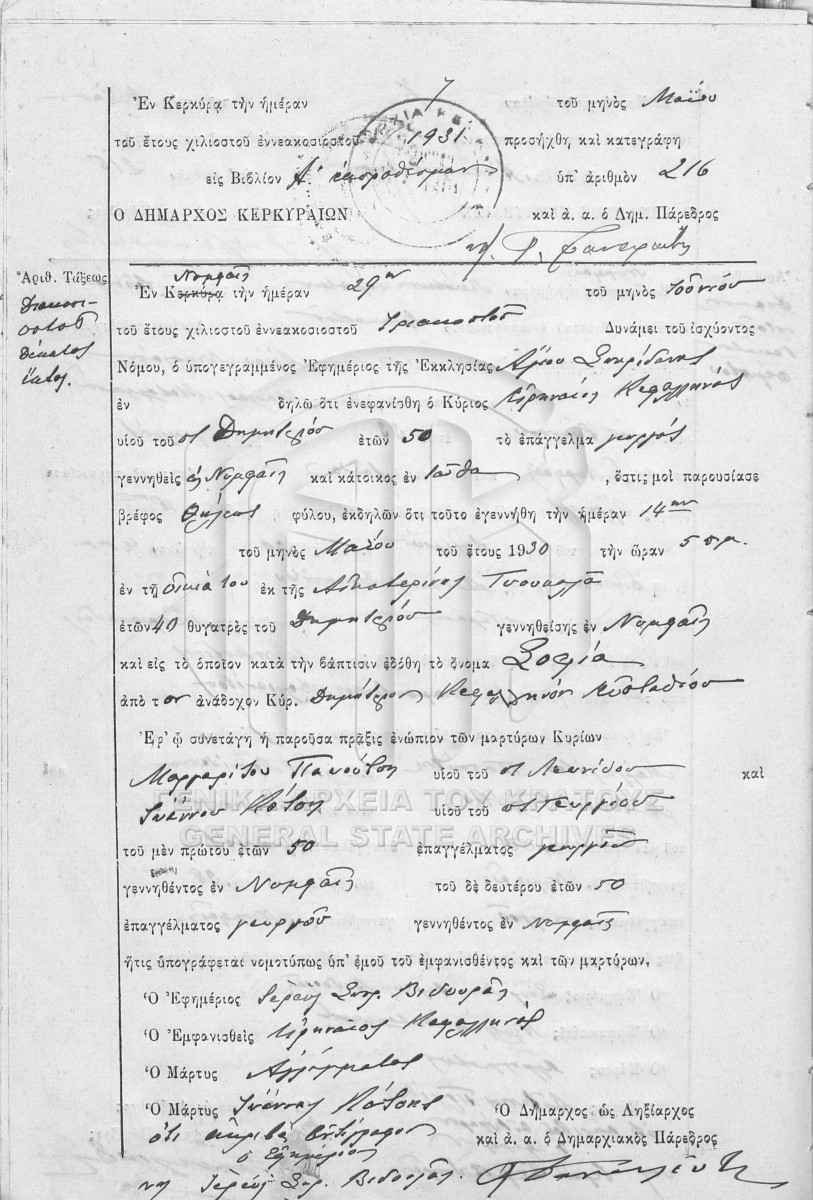 Ἐν Κερκύρᾳ τὴν ἡμέραν 7 τοῦ μηνὸς Μαΐου
τοῦ ἔτους χιλιοστοῦ ἐννεακοσιοστοῦ 1931 προσήχθη καὶ κατεγράφη
εἰς Βιβλίον Α΄ ὑπ' ἀριθμὸν 216
Ο ΔΗΜΑΡΧΟΣ ΚΕΡΚΥΡΑΙΩΝ καὶ ἀ. ἀ. ὁ Δημ. Πάρεδρος
Ἀριθ. Τάξεως
Διακοσι-
οστοῦ
δέκατος
ἕκτος.
Νυμφαῖς
Ἐν Κερκύρᾳ τὴν ἡμέραν 29ην τοῦ μηνὸς Ἰουνίου
τοῦ ἔτους χιλιοστοῦ ἐννεακοσιοστοῦ Τριακοστοῦ Δυνάμει τοῦ ἰσχύοντος
Νόμου, ὁ ὑπογεγραμμένος Ἐφημέριος τῆς Ἐκκλησίας Ἁγίου Σπυρίδωνος
ἐν δηλῶ ὅτι ἐνεφανίσθη ὁ Κύριος Εἰρηναῖος Κεφαλληνός
υἱοῦ τοῦ Δημητρίου ἐτῶν 50 τὸ ἐπάγγελμα γεωργός
γεννηθεὶς ἐν Νυμφαῖς καὶ κάτοικος ἐν ταῦθα , ὅστις μοὶ παρουσίασε
βρέφος θήλεος φύλου, ἐκδηλῶν ὅτι τοῦτο ἐγεννήθη τὴν ἡμέραν 14ην
τοῦ μηνὸς Μαΐου τοῦ ἔτους 1930 τὴν ὥραν 5 π.μ.
ἐν τῇ οἰκίᾳ του ἐκ τῆς Αἰκατερίνης Τσουκαλᾶ
ἐτῶν 40 θυγατρὸς τοῦ Δημητρίου γεννηθείσης ἐν Νυμφαῖς
καὶ εἰς τὸ ὁποῖον κατὰ τὴν βάπτισιν ἐδόθη τὸ ὄνομα Σοφία
ἀπὸ τον ἀνάδοχον Κύρ. Δημήτριον Κεφαλληνόν Εὐσταθίου
Ἐφ' ᾧ συνετάγη ἡ παροῦσα πρᾶξις ἐνώπιον τῶν μαρτύρων Κυρίων
Μαργαρίτου Πανούτση υἱοῦ τοῦ Λεωνίδου καὶ
Ἰωάννου Κότση υἱοῦ τοῦ Γεωργίου
ΓΕΝΙΚΑ ΑΡΧΕΙΑ ΤΟΥ ΚΡΑΤΟΥΣ
GENERAL STATE ARCHIVES
τοῦ μὲν πρώτου ἐτῶν 50 ἐπαγγέλματος γεωργοῦ
γεννηθέντος ἐν Νυμφαῖς τοῦ δὲ δευτέρου ἐτῶν 50
ἐπαγγέλματος γεωργοῦ γεννηθέντος ἐν Νυμφαῖς
ἥτις ὑπογράφεται νομοτύπως ὑπ' ἐμοῦ τοῦ ἐμφανισθέντος καὶ τῶν μαρτύρων.
Ὁ Ἐφημέριος Ἱερεύς Σπυρ. Βιδουρᾶς
Ὁ Ἐμφανισθεὶς Εἰρηναῖος Κεφαλληνός
Ὁ Μάρτυς Ἀγράμματος
Ὁ Μάρτυς Ἰωάννης Κότσης Ὁ Δήμαρχος ὡς Ληξίαρχος
ὅτι ἀκριβές ἀντίγραφον καὶ ἀ. ἀ. ὁ Δημαρχιακὸς Πάρεδρος
ὁ Ἐφημέριος
Ἱερεύς Σπ. Βιδουρᾶς